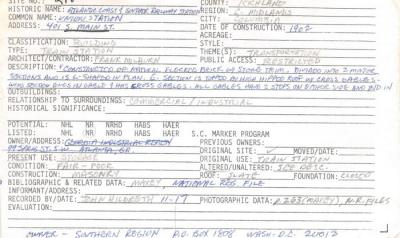 SITE NO.
COUNTY: RICHLAND
HISTORIC NAME: ATLANTIC COAST & SOUTHERN RAILWAY STATION
REGION: C. MIDLANDS
COMMON NAME: UNION STATION
CITY: COLUMBIA
ADDRESS: 401 S. MAIN ST.
DATE OF CONSTRUCTION: 1902
ACREAGE:
CLASSIFICATION: BUILDING
STYLE:
TYPE: TRAIN STATION
THEME(S): TRANSPORTATION
ARCHITECT/CONTRACTOR: FRANK MILBURN
PUBLIC ACCESS: RESTRICTED
DESCRIPTION: CONSTRUCTED OF NATURAL FLECKED BRICK W/ STONE TRIM, DIVIDED INTO 2 MAJOR
SECTIONS AND IS L-SHAPED IN PLAN. C. SECTION IS TOPPED BY HIGH HIPPED ROOF W/ CROSS GABLES -
GABLE & HAS CROSS GABLES. ALL GABLES HAVE 2 STEPS ON EITHER SIDE AND
OUTBUILDINGS:
RELATIONSHIP TO SURROUNDINGS: COMMERCIAL / INDUSTRIAL
HISTORICAL SIGNIFICANCE:
POTENTIAL: NHL NR NRHD HABS HAER
LISTED: NHL NR NRHD HABS HAER S.C. MARKER PROGRAM
OWNER/ADDRESS: GEORGIA INDUSTRIAL REALTY
PREVIOUS OWNERS:
99 SPRING ST. S.W. ATLANTA, GA.
ORIGINAL SITE: ✓ MOVED/DATE:
PRESENT USE: STORAGE
ORIGINAL USE: TRAIN STATION
CONDITION: FAIR - POOR
ALTERED/UNALTERED:
CONSTRUCTION: MASONRY
ROOF: SLATE FOUNDATION: CLOSED
BIBLIOGRAPHIC & RELATED DATA: MAXEY, NATIONAL REG. FILE
ADDITIONAL DATA:
RECORDED BY/DATE: JOHN HILDRETH 11-17
PHOTOGRAPHIC DATA: (MAXEY), N.R. FILES
EVALUATION:
OWNER - SOUTHERN REGION P.O. BOX 1808 WASH. D.C. 20013